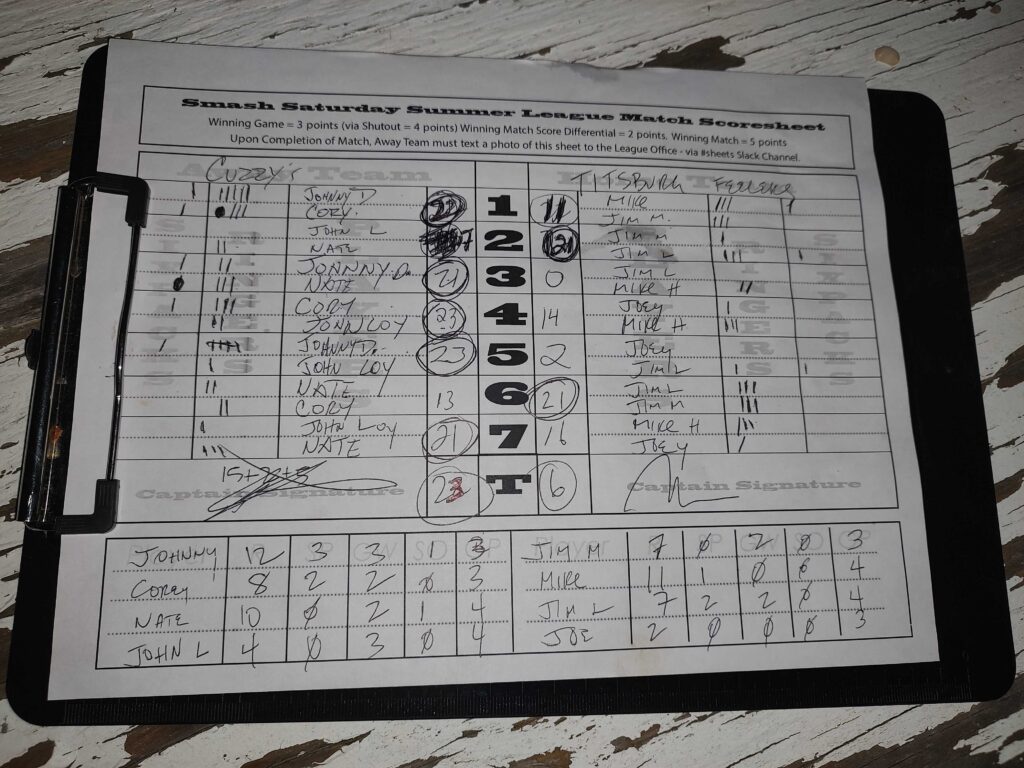 Smash Saturday Summer League Match Scoresheet
Winning Game = 3 points (via Shutout = 4 points) Winning Match Score Differential = 2 points. Winning Match = 5 points
Upon Completion of Match, Away Team must text a photo of this sheet to the League Office - via #sheets Slack Channel.
Cuzzy's Team TITSBURG
JOHNNY D 1 11 MIKE
CORY JIM M.
JOHN L 2 21 JIM M
NATE JIM L
JOHNNY D. 21 3 0 JIM L
NATE MIKE H
CORY 23 4 14 JOEY
JOHN LOY MIKE H
JOHNNY D. 23 5 2 JOEY
JOHN LOY JIM L
NATE 13 6 21 JIM L
CORY JIM M
JOHN LOY 21 7 16 MIKE H
NATE JOEY
Captain Signature 23 T 6 Captain Signature
JOHNNY 12 3 3 1 3 JIM M 7 0 2 0 3
COREY 8 2 2 0 3 MIKE 11 1 0 0 4
NATE 10 0 2 1 4 JIM L 7 2 2 0 4
JOHN L 4 0 3 0 4 JOE 2 0 0 0 3